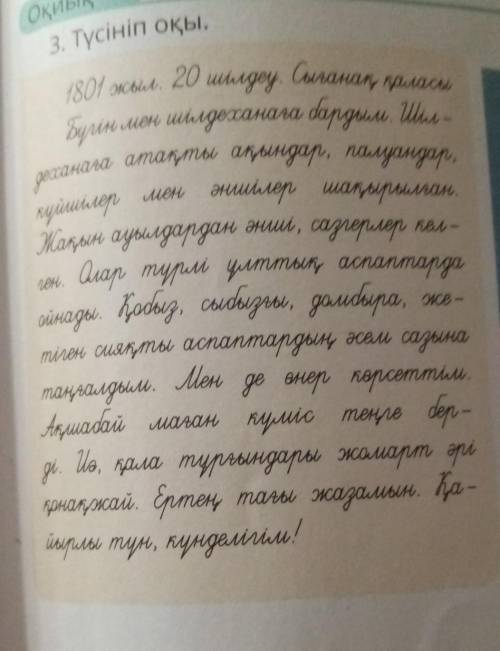 Оқиық
3. Түсініп оқы.
1801 жыл. 20 шілдеу. Сығанақ қаласы
Бүгін мен шілдеханаға бардым. Шіл-
деханаға атақты ақындар, палуандар,
күйшілер мен әншілер шақырылған.
Жақын ауылдардан әнші, сазгерлер кел-
ген. Олар түрлі ұлттық аспаптарда
ойнады. Қобыз, сыбызғы, домбыра, же-
тіген сияқты аспаптардың әсем сазына
таңғалдым. Мен де өнер көрсеттім.
Ақшабай маған күміс теңге бер-
ді. Иә, қала тұрғындары жомарт әрі
қонақжай. Ертең тағы жазамын. Қа-
йырлы түн, күнделігім!